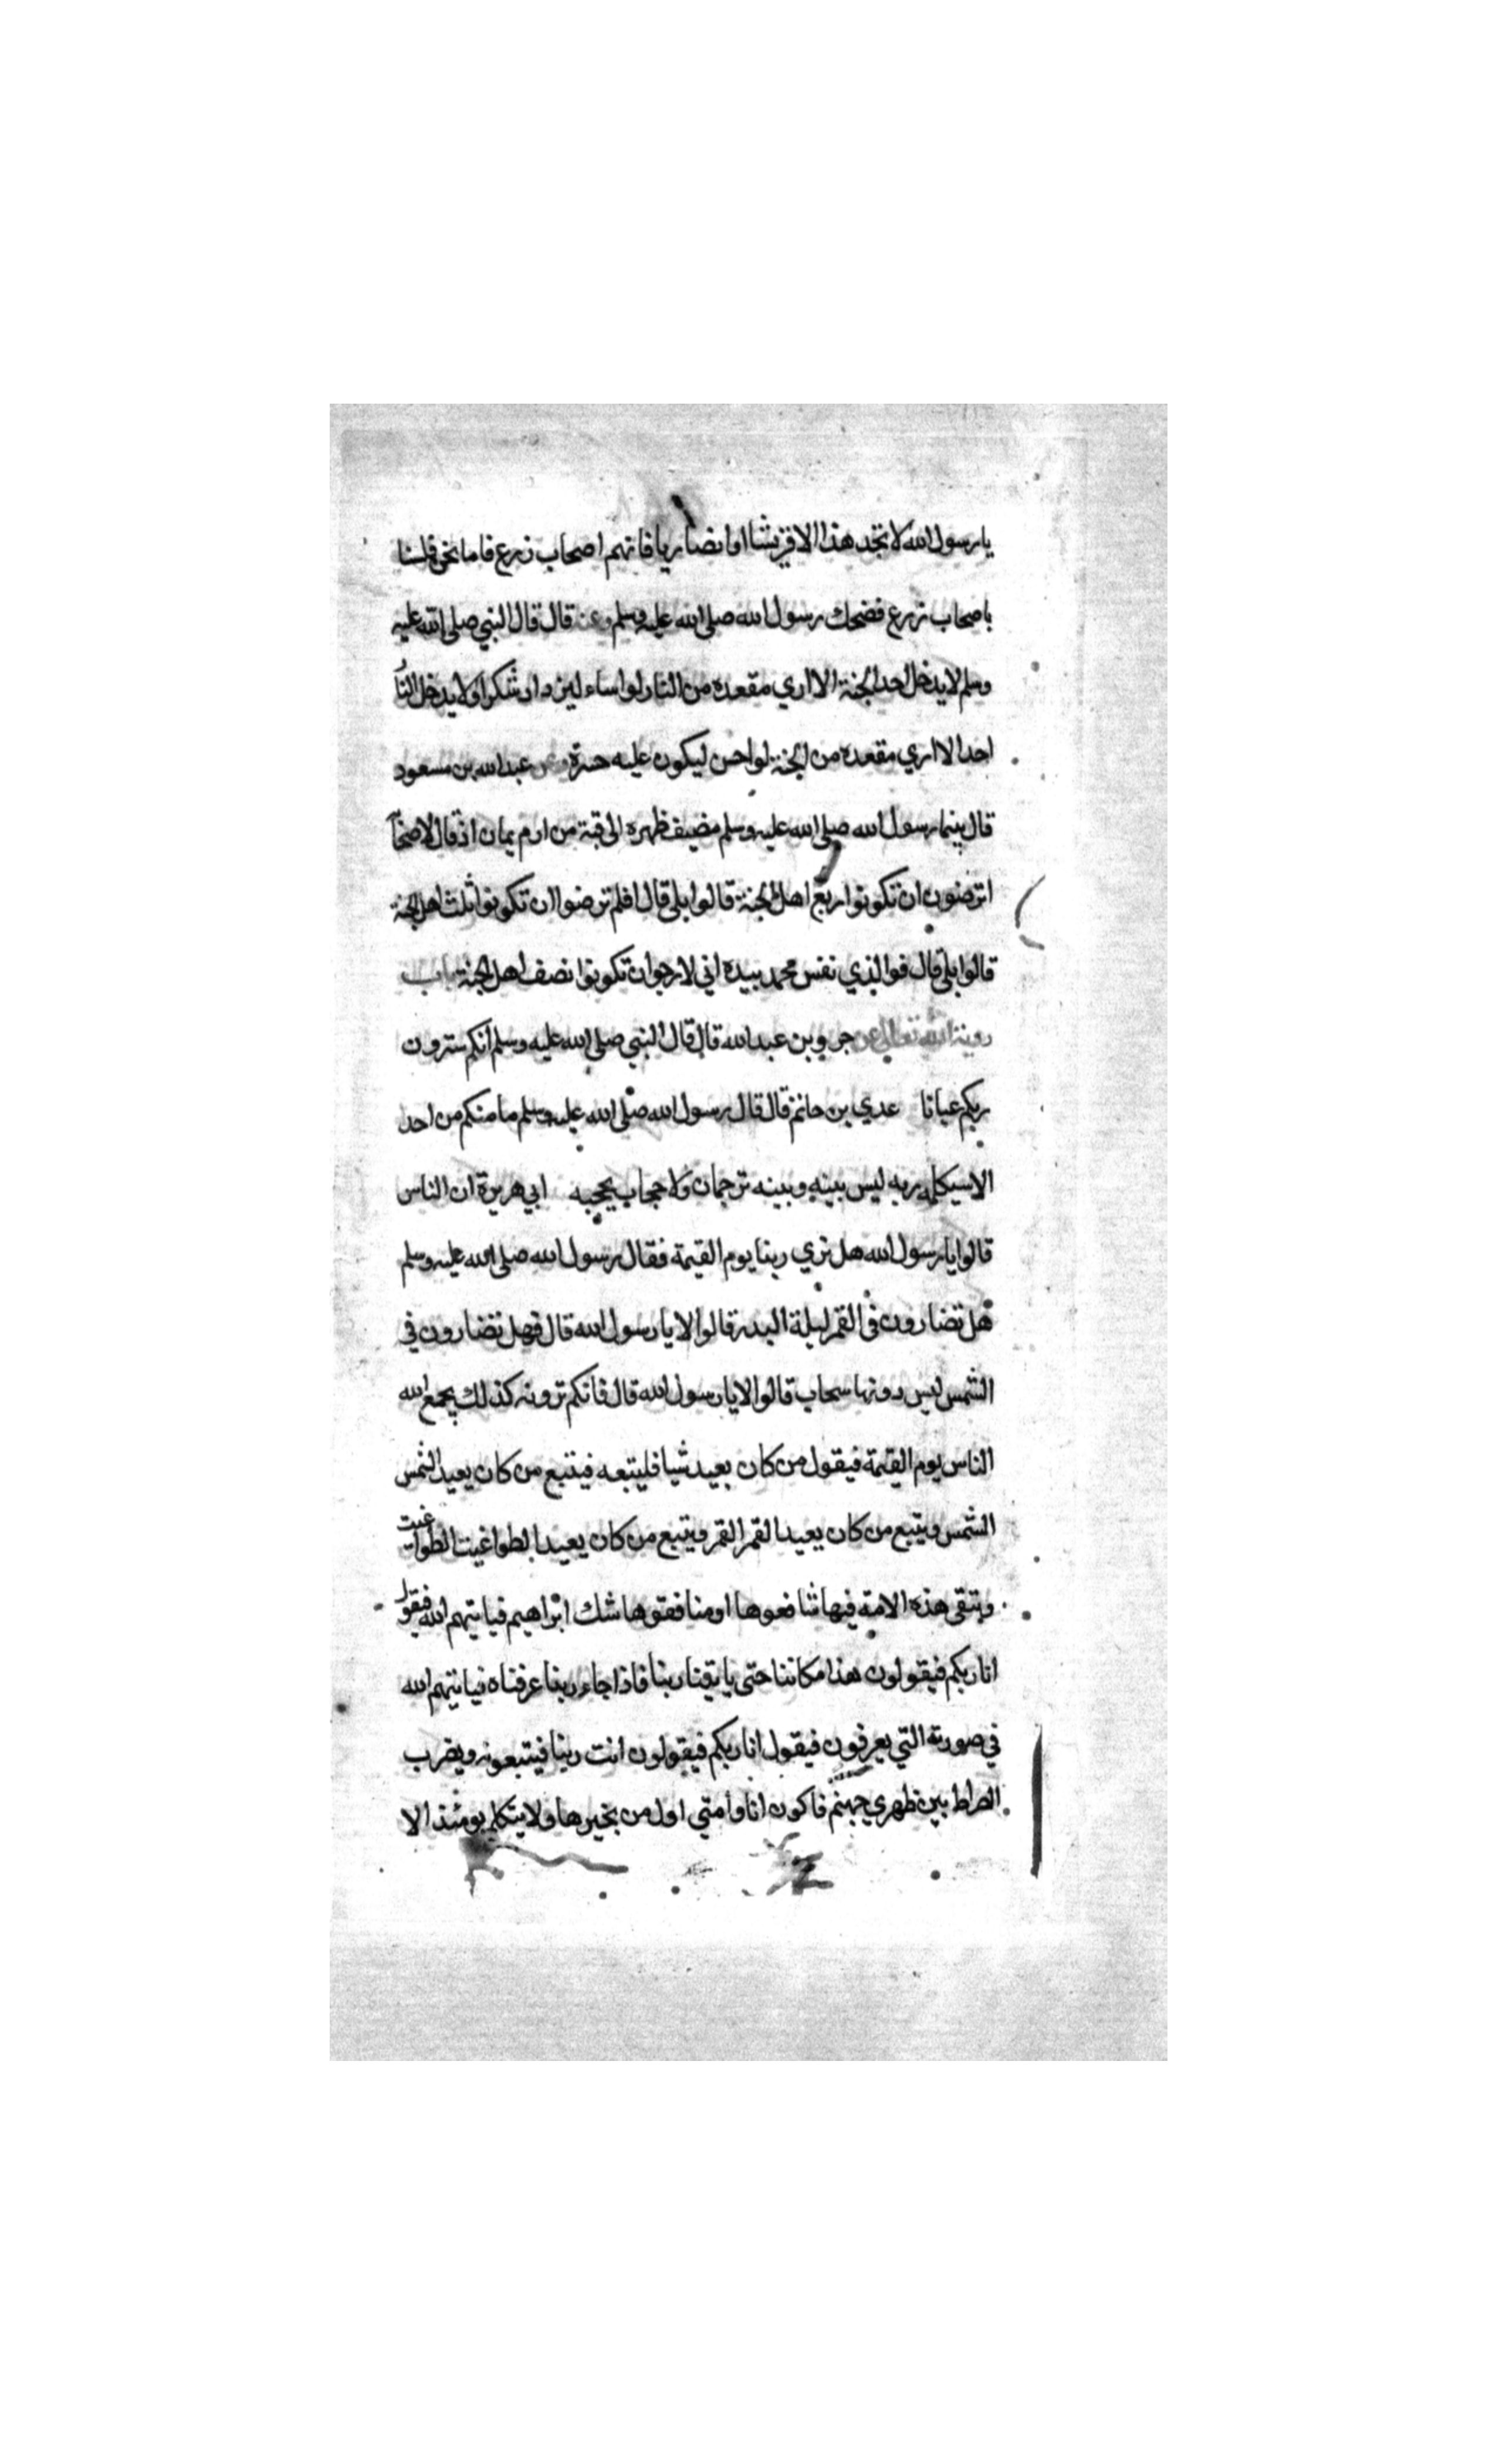 يا رسول الله لا تجد هذا الا قريشا او انصاريا فانهم اصحاب زرع فاما نحن فلسنا
باصحاب زرع فضحك رسول الله صلى الله عليه وسلم وعن قال قال النبي صلى الله عليه
وسلم لا يدخل احد الجنة الا اري مقعده من النار لو اساء ليزداد شكرا ولا يدخل النا
احد الا اري مقعده من الجنة لو احسن ليكون عليه حسرة وعن عبد الله بن مسعود
قال بينما رسول الله صلى الله عليه وسلم مضيف ظهره الى قبة من ادم يمان اذ قال لاصحا
اترضون ان تكونوا ربع اهل الجنة قالوا بلى قال افلم ترضوا ان تكونوا ثلث اهل الجنة
قالوا بلى قال فوالذي نفس محمد بيده اني لارجو ان تكونوا نصف اهل الجنة باب
روية الله تعالى عن جرير بن عبد الله قال قال النبي صلى الله عليه وسلم انكم سترون
ربكم عيانا عدي بن حاتم قال قال رسول الله صلى الله عليه وسلم ما منكم من احد
الا سيكلمه ربه ليس بينه وبينه ترجمان ولا حجاب يحجبه ابي هريرة ان الناس
قالوا يا رسول الله هل نري ربنا يوم القيمة فقال رسول الله صلى الله عليه وسلم
هل تضارون في القمر ليلة البدر قالوا لا يا رسول الله قال فهل تضارون في
الشمس ليس دونها سحاب قالوا لا يا رسول الله قال فانكم ترونه كذلك يجمع الله
الناس يوم القيمة فيقول من كان يعبد شيا فليتبعه فيتبع من كان يعبد الشمس
الشمس ويتبع من كان يعبد القمر القمر ويتبع من كان يعبد الطواغيت الطواغيت
وتبقى هذه الامة فيها شافعوها او منافقوها شك ابراهيم فياتيهم الله فيقول
انا ربكم فيقولون هذا مكاننا حتى ياتينا ربنا فاذا جاء ربنا عرفناه فياتيهم الله
في صورته التي يعرفون فيقول انا ربكم فيقولون انت ربنا فيتبعونه ويضرب
الصراط بين ظهري جهنم فاكون انا وامتي اول من يجيزها ولا يتكلم يومئذ الا